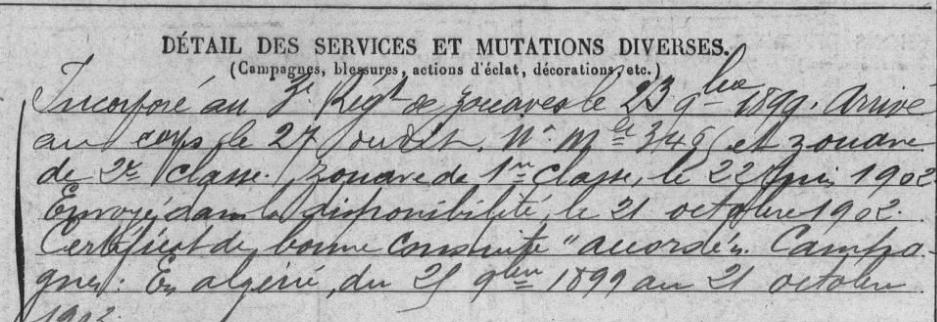 DÉTAIL DES SERVICES ET MUTATIONS DIVERSES.
(Campagnes, blessures, actions d'éclat, décorations, etc.)
Incorporé au 3e Régt de zouaves le 23 9bre 1899. Arrivé
au corps le 27 dudit. No Mle 3469 et zouave
de 2e classe. Zouave de 1re classe, le 22 juin 1902
Envoyé dans la disponibilité, le 21 octobre 1902.
Certificat de bonne conduite "accordé". Campa-
gnes: En algérie, du 25 9bre 1899 au 21 octobre
1902.